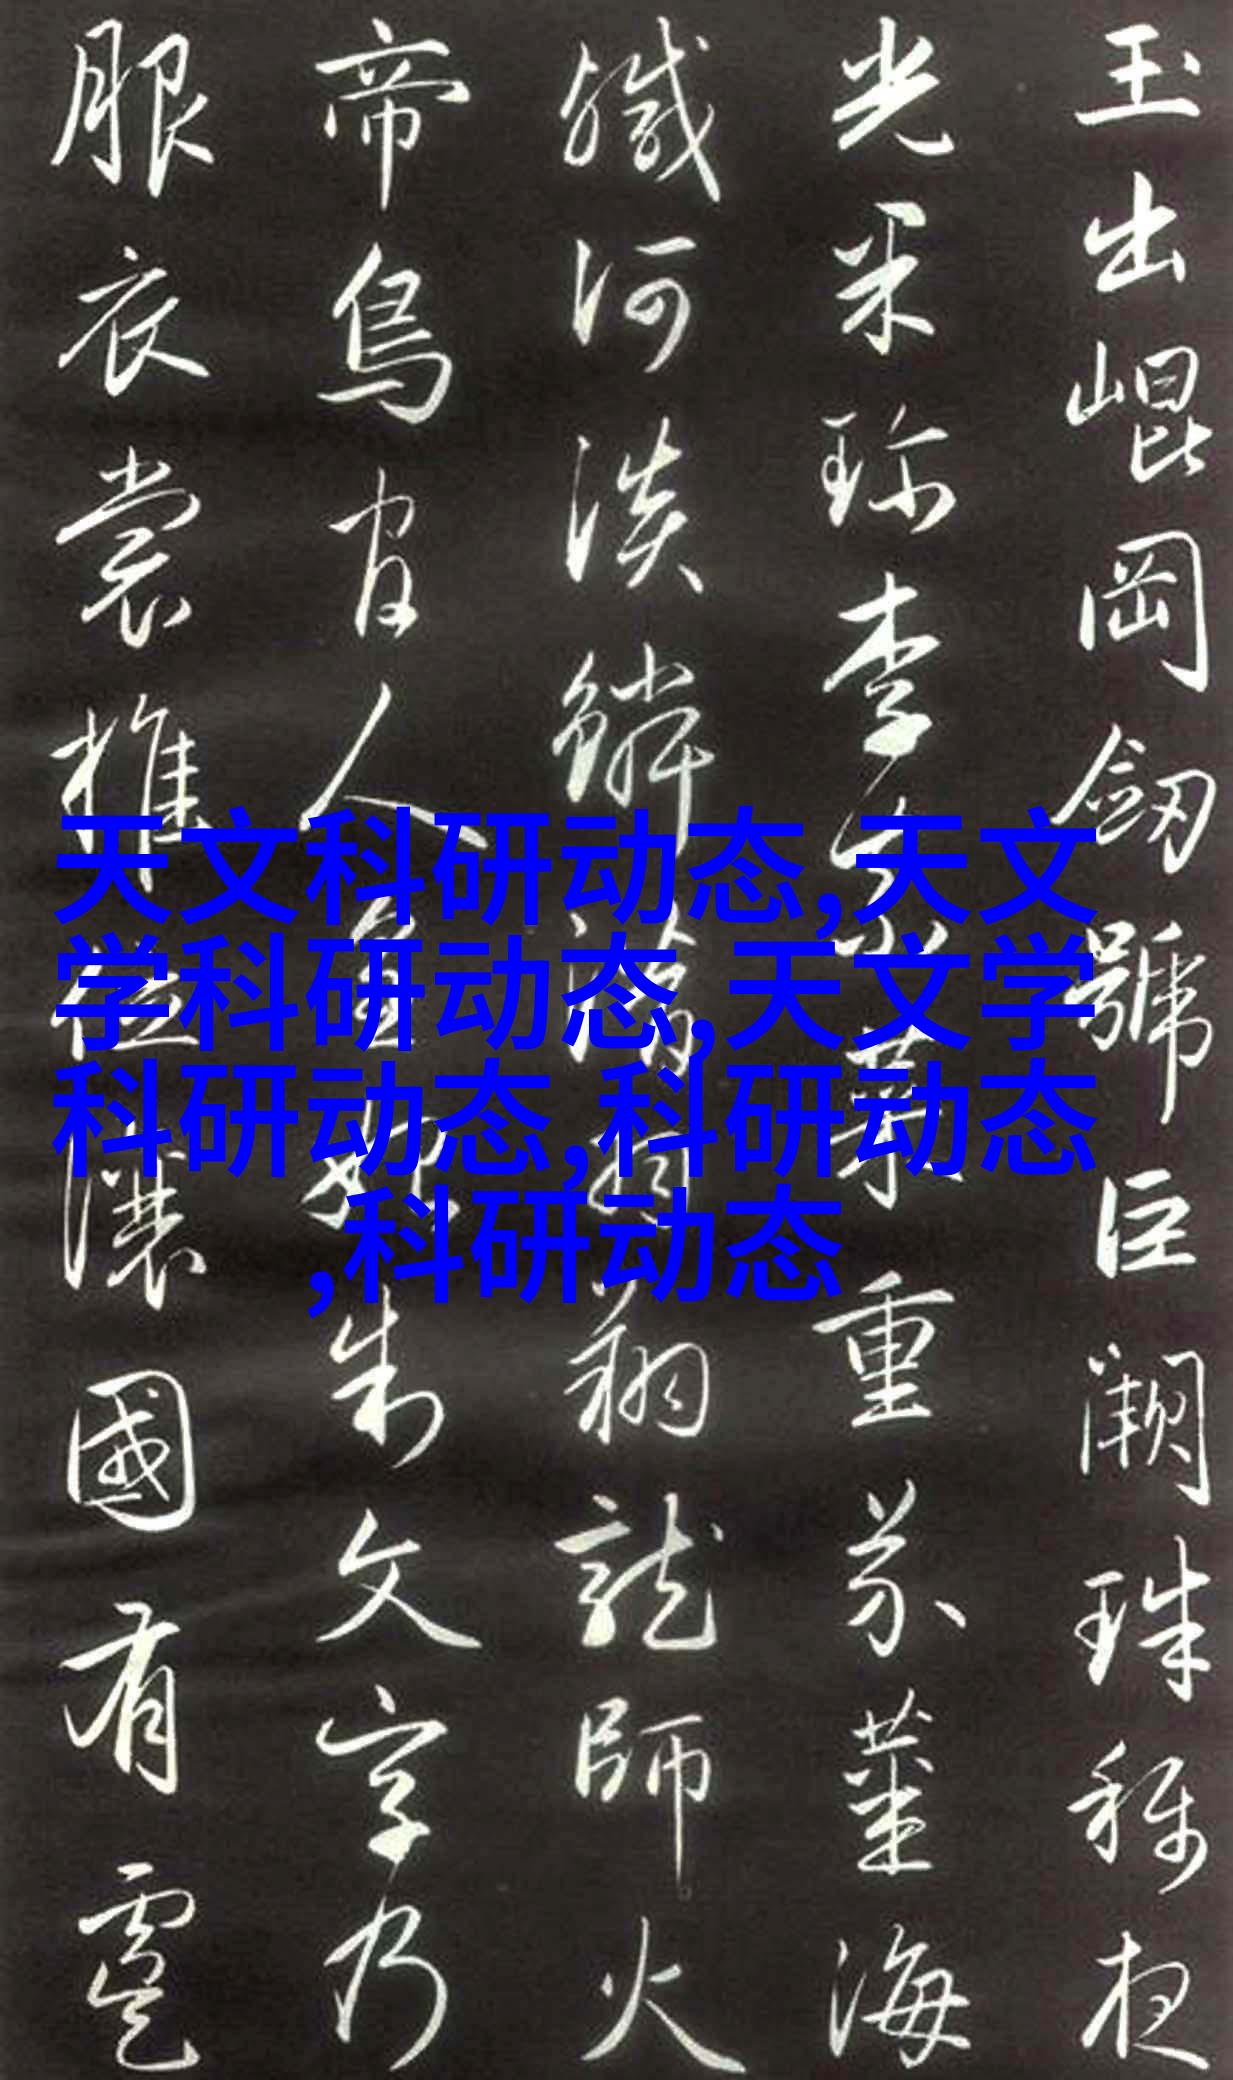 玉出崐岡劒號巨闕珠稱夜
光果珍李柰菜重芥薑海
鹹河淡鱗潛羽翔龍師火
帝鳥官人皇始制文字乃
服衣裳推位讓國有虞
天文科研动态,天文
学科研动态,天文学
科研动态,科研动态
,科研动态